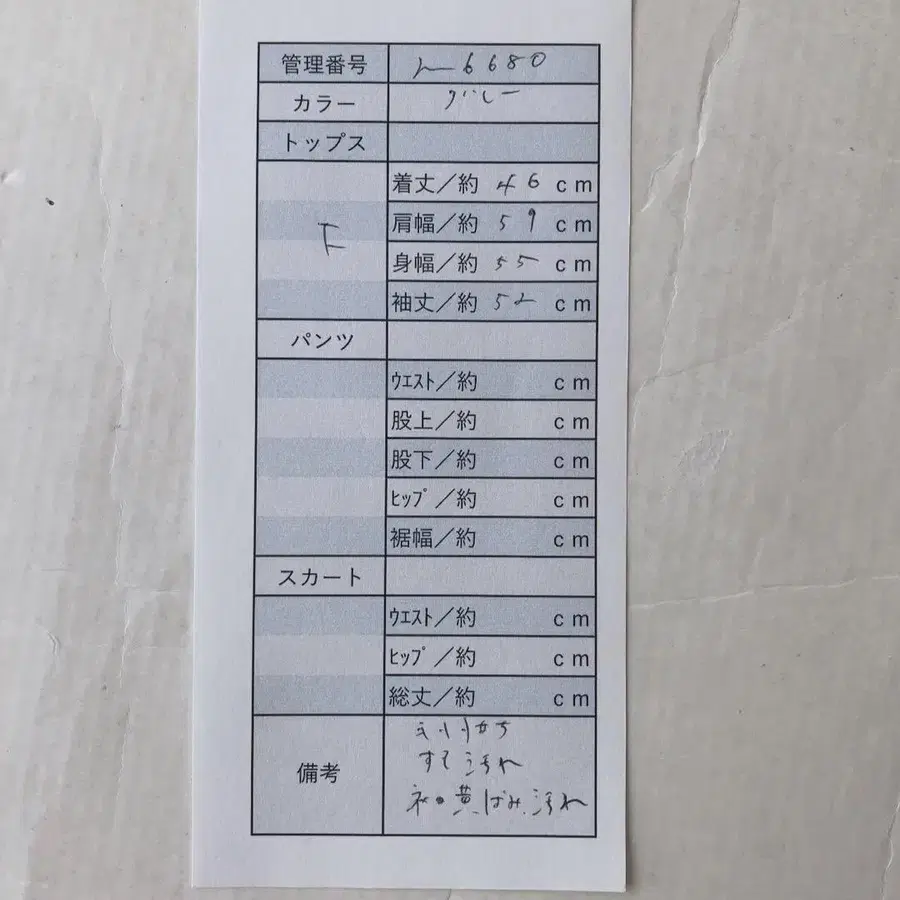 管理番号 6680
カラー グレー
トップス
F
着丈／約 46 cm
肩幅／約 59 cm
身幅／約 55 cm
袖丈／約 52 cm
パンツ
ｳｴｽﾄ／約 cm
股上／約 cm
股下／約 cm
ﾋｯﾌﾟ／約 cm
裾幅／約 cm
スカート
ｳｴｽﾄ／約 cm
ﾋｯﾌﾟ／約 cm
総丈／約 cm
備考
すそ汚れ
黄ばみ、汚れ